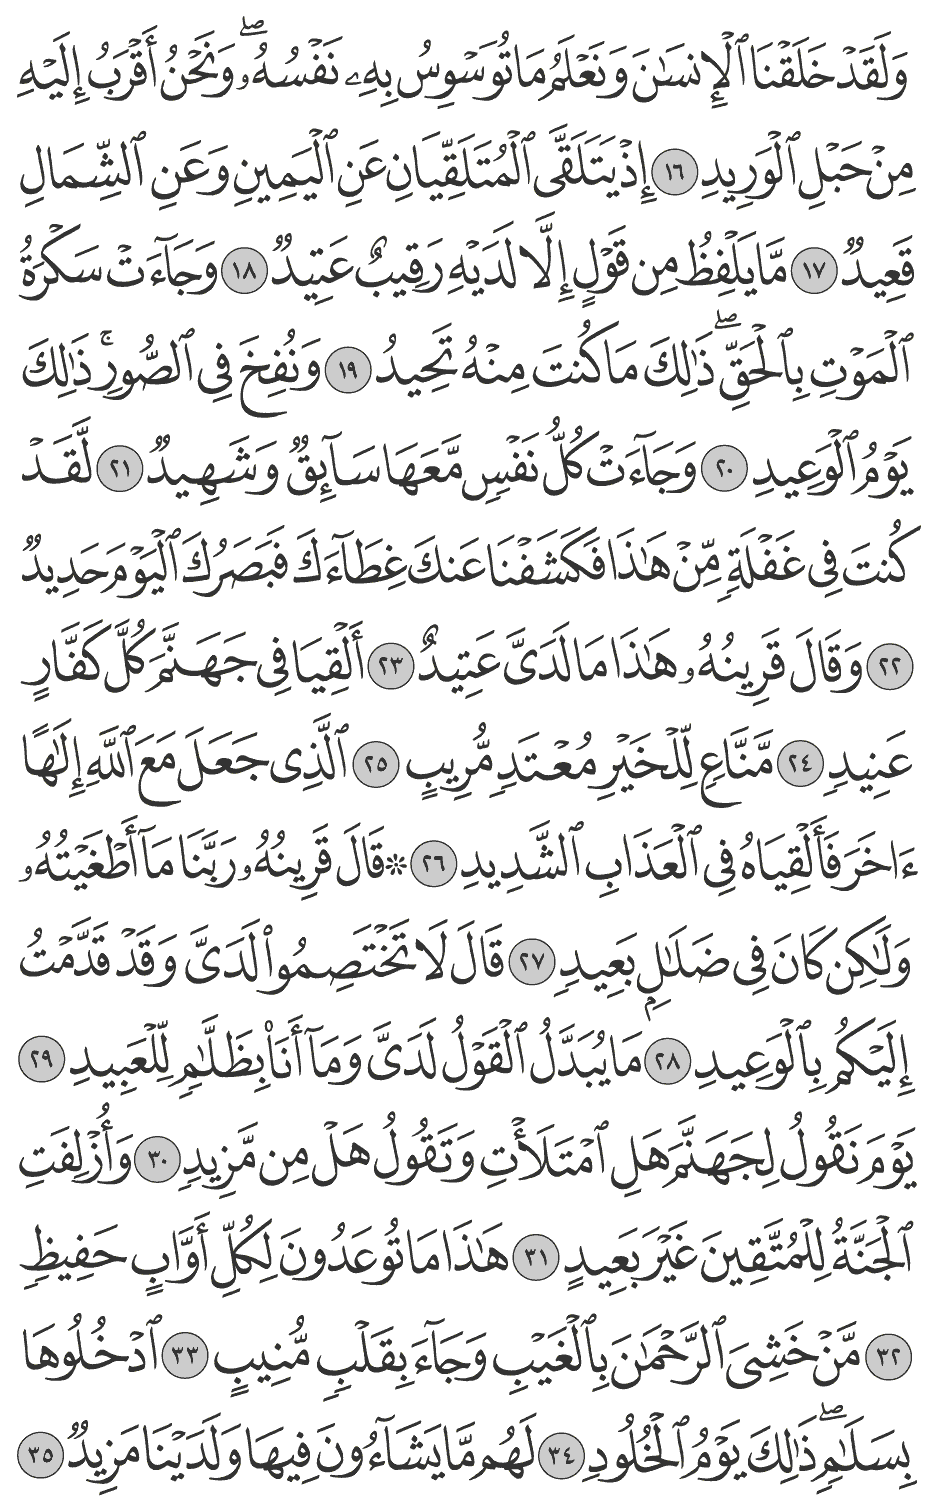 وَلَقَدْ خَلَقْنَا ٱلْإِنسَٰنَ وَنَعْلَمُ مَا تُوَسْوِسُ بِهِۦ نَفْسُهُۥۖ وَنَحْنُ أَقْرَبُ إِلَيْهِ
مِنْ حَبْلِ ٱلْوَرِيدِ ١٦ إِذْ يَتَلَقَّى ٱلْمُتَلَقِّيَانِ عَنِ ٱلْيَمِينِ وَعَنِ ٱلشِّمَالِ
قَعِيدٌ ١٧ مَّا يَلْفِظُ مِن قَوْلٍ إِلَّا لَدَيْهِ رَقِيبٌ عَتِيدٌ ١٨ وَجَآءَتْ سَكْرَةُ
ٱلْمَوْتِ بِٱلْحَقِّۖ ذَٰلِكَ مَا كُنتَ مِنْهُ تَحِيدُ ١٩ وَنُفِخَ فِى ٱلصُّورِۚ ذَٰلِكَ
يَوْمُ ٱلْوَعِيدِ ٢٠ وَجَآءَتْ كُلُّ نَفْسٍ مَّعَهَا سَآئِقٌ وَشَهِيدٌ ٢١ لَّقَدْ
كُنتَ فِى غَفْلَةٍ مِّنْ هَٰذَا فَكَشَفْنَا عَنكَ غِطَآءَكَ فَبَصَرُكَ ٱلْيَوْمَ حَدِيدٌ
٢٢ وَقَالَ قَرِينُهُۥ هَٰذَا مَا لَدَىَّ عَتِيدٌ ٢٣ أَلْقِيَا فِى جَهَنَّمَ كُلَّ كَفَّارٍ
عَنِيدٍ ٢٤ مَّنَّاعٍ لِّلْخَيْرِ مُعْتَدٍ مُّرِيبٍ ٢٥ ٱلَّذِى جَعَلَ مَعَ ٱللَّهِ إِلَٰهًا
ءَاخَرَ فَأَلْقِيَاهُ فِى ٱلْعَذَابِ ٱلشَّدِيدِ ٢٦ ۞ قَالَ قَرِينُهُۥ رَبَّنَا مَآ أَطْغَيْتُهُۥ
وَلَٰكِن كَانَ فِى ضَلَٰلٍۭ بَعِيدٍ ٢٧ قَالَ لَا تَخْتَصِمُوا۟ لَدَىَّ وَقَدْ قَدَّمْتُ
إِلَيْكُم بِٱلْوَعِيدِ ٢٨ مَا يُبَدَّلُ ٱلْقَوْلُ لَدَىَّ وَمَآ أَنَا۠ بِظَلَّٰمٍ لِّلْعَبِيدِ ٢٩
يَوْمَ نَقُولُ لِجَهَنَّمَ هَلِ ٱمْتَلَأْتِ وَتَقُولُ هَلْ مِن مَّزِيدٍ ٣٠ وَأُزْلِفَتِ
ٱلْجَنَّةُ لِلْمُتَّقِينَ غَيْرَ بَعِيدٍ ٣١ هَٰذَا مَا تُوعَدُونَ لِكُلِّ أَوَّابٍ حَفِيظٍ
٣٢ مَّنْ خَشِىَ ٱلرَّحْمَٰنَ بِٱلْغَيْبِ وَجَآءَ بِقَلْبٍ مُّنِيبٍ ٣٣ ٱدْخُلُوهَا
بِسَلَٰمٍۖ ذَٰلِكَ يَوْمُ ٱلْخُلُودِ ٣٤ لَهُم مَّا يَشَآءُونَ فِيهَا وَلَدَيْنَا مَزِيدٌ ٣٥